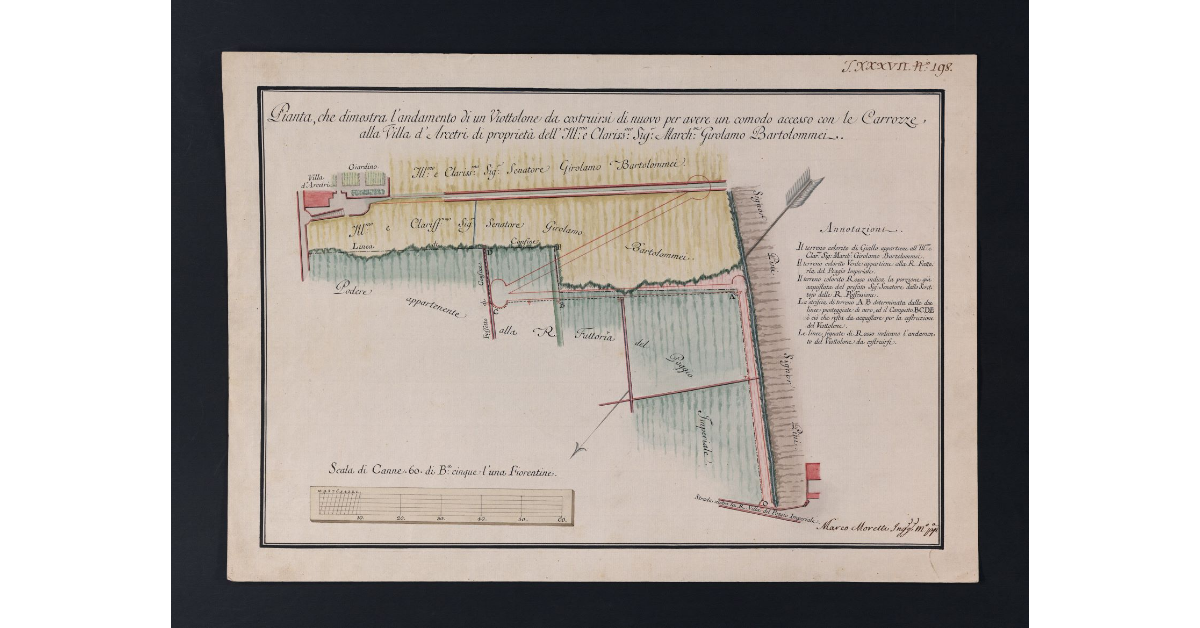 T. XXXVII. N.º 198.
Pianta, che dimostra l'andamento di un Viottolone da costruirsi di nuovo per avere un comodo accesso con le Carrozze,
alla Villa d'Arcetri di proprietà dell'Ill.mo e Clariss.mo Sig.r March.e Girolamo Bartolommei.
Giardino
Villa
d'Arcetri
Ill.mo e Clariss.mo Sig.r Senatore Girolamo Bartolommei
Ill.mo e Clariss.mo Sig.r Senatore Girolamo
Bartolommei
Linea di Confine
Confine
D
E
C
B
A
Podere appartenente alla R. Fattoria del Poggio Imperiale
Signori
Pini
Signori
Pini
Annotazioni
Il terreno colorito di Giallo appartiene all'Ill.mo
Clar.mo Sig.r March.e Girolamo Bartolommei.
Il terreno colorito Verde appartiene alla R. Fatto-
ria del Poggio Imperiale.
Il terreno colorito Rosso indica la porzione già
acquistata del prefato Sig.r Senatore dallo Scrit-
tojo delle R. Possessioni.
La striscia di terreno A B determinata dalle due
linee punteggiate di nero, ed il Campetto BCDE
è ciò che resta da acquistare per la costruzione
del Viottolone.
Le linee segnate di Rosso indicano l'andamen-
to del Viottolone da costruirsi.
Scala di Canne 60. di B.a cinque l'una Fiorentine.
10. 20. 30. 40. 50. 60.
Strada del Poggio Imperiale
Marco Moretti Ing.re